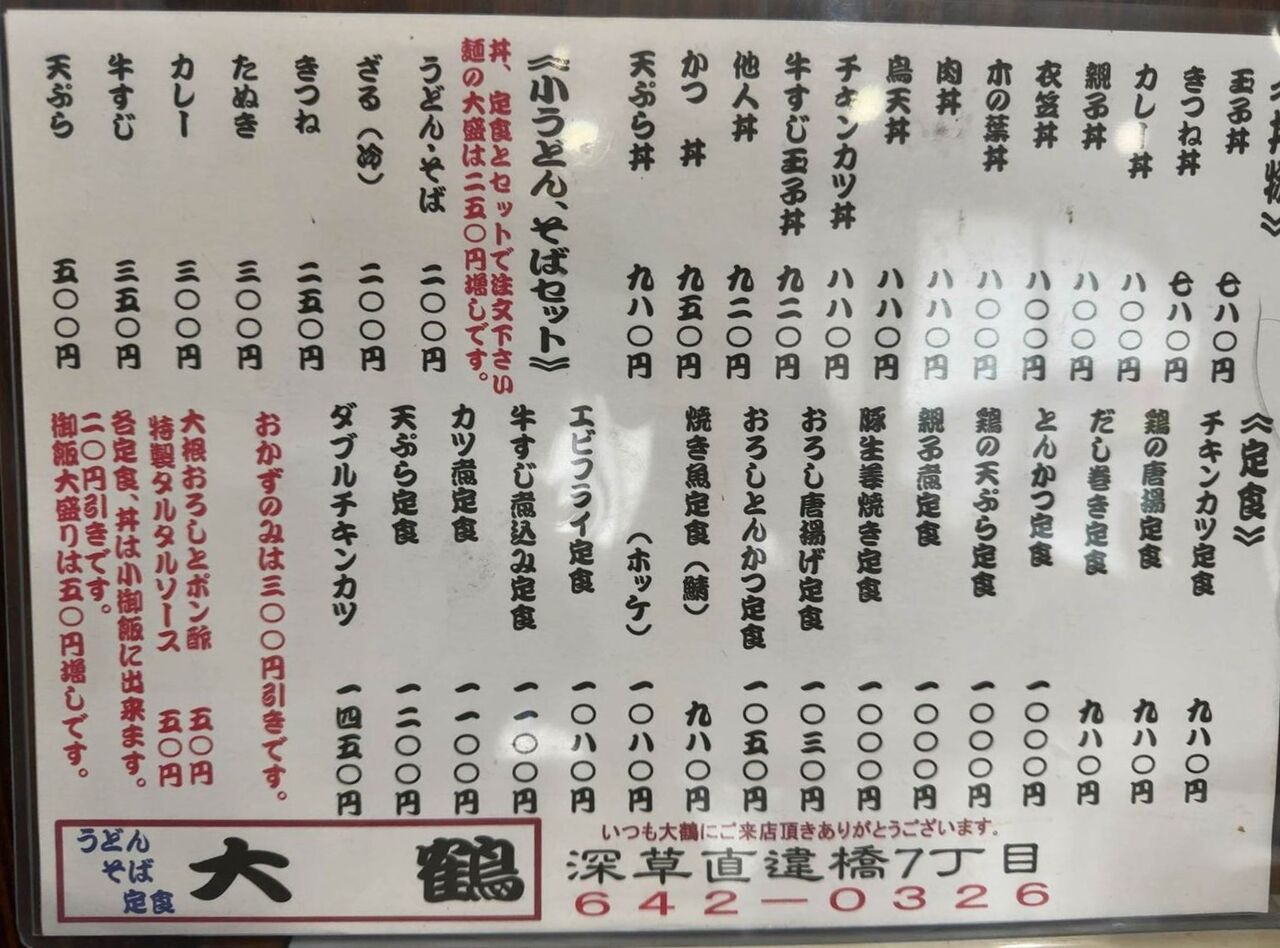 丼物》
玉子丼 七八〇円
きつね丼 七八〇円
カレー丼 八〇〇円
親子丼 八〇〇円
衣笠丼 八〇〇円
木の葉丼 八〇〇円
肉丼 八八〇円
鳥天丼 八八〇円
チキンカツ丼 八八〇円
牛すじ玉子丼 九二〇円
他人丼 九二〇円
かつ 丼 九五〇円
天ぷら丼 九八〇円
《小うどん、そばセット》
丼、定食とセットで注文下さい
麺の大盛は二五〇円増しです。
うどん・そば 二〇〇円
ざる（冷） 二〇〇円
きつね 二五〇円
たぬき 三〇〇円
カレー 三〇〇円
牛すじ 三五〇円
天ぷら 五〇〇円
《定食》
チキンカツ定食 九八〇円
鶏の唐揚定食 九八〇円
だし巻き定食 九八〇円
とんかつ定食 一〇〇〇円
鶏の天ぷら定食 一〇〇〇円
親子煮定食 一〇〇〇円
豚生姜焼き定食 一〇〇〇円
おろし唐揚げ定食 一〇三〇円
おろしとんかつ定食 一〇五〇円
焼き魚定食（鯖） 九八〇円
（ホッケ） 一〇八〇円
エビフライ定食 一〇八〇円
牛すじ煮込み定食 一一〇〇円
カツ煮定食 一一〇〇円
天ぷら定食 一二〇〇円
ダブルチキンカツ 一四五〇円
おかずのみは三〇〇円引きです。
大根おろしとポン酢 五〇円
特製タルタルソース 五〇円
各定食、丼は小御飯に出来ます。
二〇円引きです。
御飯大盛りは五〇円増しです。
うどん
そば
定食
大鶴
いつも大鶴にご来店頂きありがとうございます。
深草直違橋7丁目
642－0326